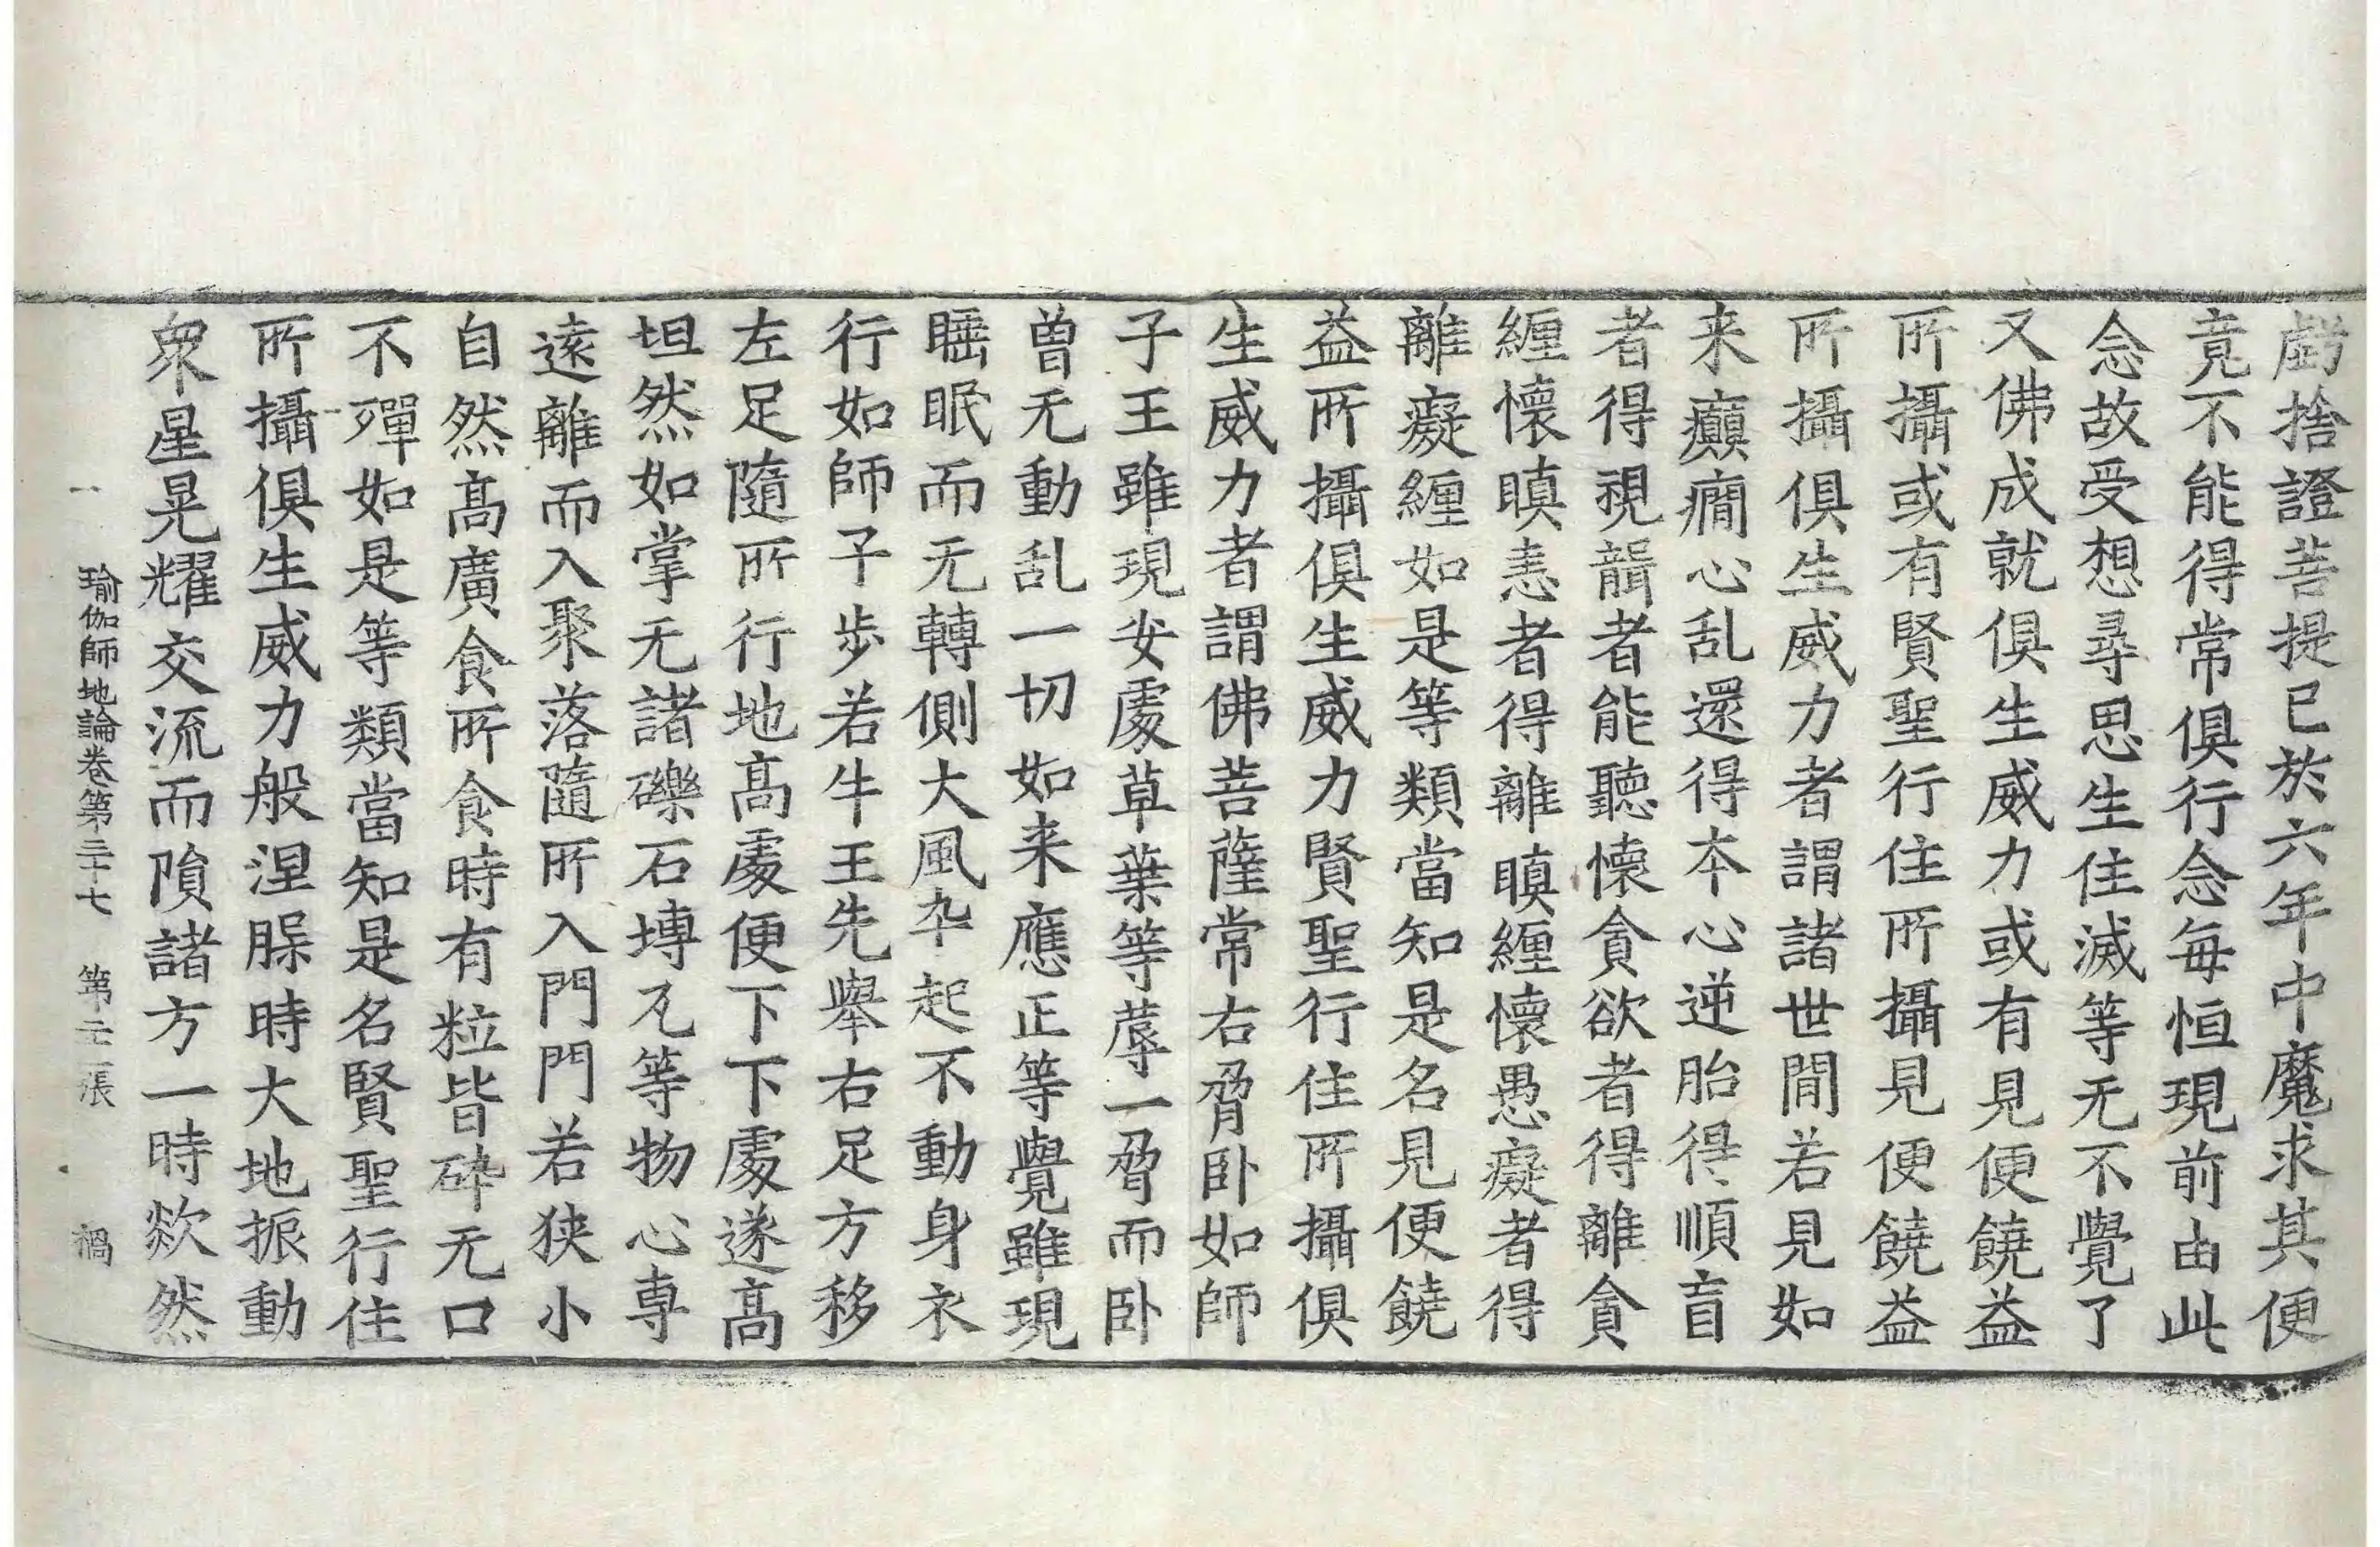 尠捨證菩提已於六年中魔求其便
竟不能得常俱行念每恒現前由此
念故受想尋思生住滅等无不覺了
又佛成就俱生威力或有見便饒益
所攝或有賢聖行住所攝見便饒益
所攝俱生威力者謂諸世間若見如
来癲癇心乱還得本心逆胎得順盲
者得視聾者能聽懷貪欲者得離貪
纏懷瞋恚者得離瞋纏懷愚癡者得
離癡纏如是等類當知是名見便饒
益所攝俱生威力賢聖行住所攝俱
生威力者謂佛菩薩常右脅卧如師
子王雖現安處草葉等蓐一脅而卧
曾无動乱一切如来應正等覺雖現
睡眠而无轉側大風卒起不動身衣
行如師子步若牛王先舉右足方移
左足隨所行地高處便下下處遂高
坦然如掌无諸礫石塼瓦等物心専
遠離而入聚落隨所入門門若狹小
自然高廣食所食時有粒皆碎无口
不殫如是等類當知是名賢聖行住
所攝俱生威力般涅槃時大地振動
衆星晃耀交流而隕諸方一時欻然
瑜伽師地論卷第三十七 第張 禍